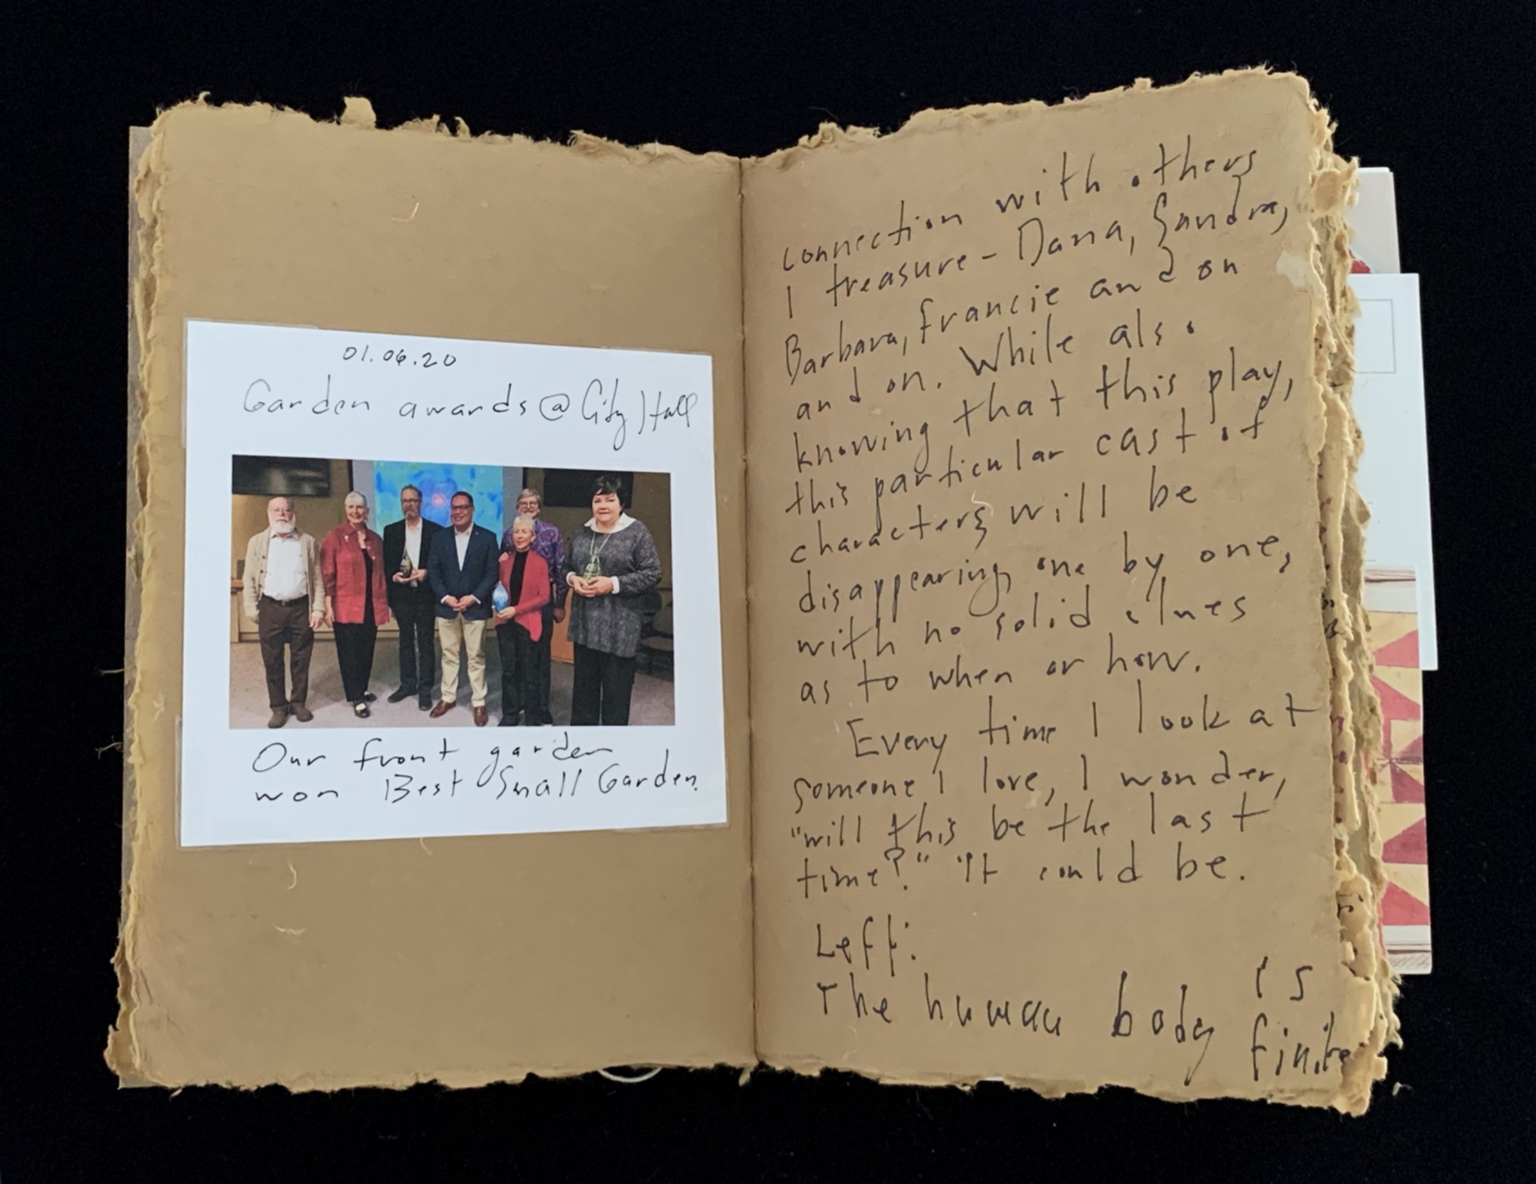 01.06.20
Garden awards @ City Hall
Our front garden
won Best Small Garden.
connection with others
I treasure - Dana, Sandra,
Barbara, Francie and on
and on. While also
knowing that this play,
this particular cast of
characters will be
disappearing, one by one,
with no solid clues
as to when or how.
Every time I look at
someone I love, I wonder,
"will this be the last
time?" It could be.
Left:
The human body is
finite